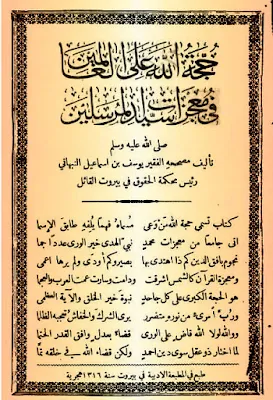 حجة الله على العالمين
في معجزات سيد المرسلين
صلى الله عليه وسلم
تأليف مصححه الفقير يوسف بن اسماعيل النبهاني
رئيس محكمة الحقوق في بيروت القائل
كتاب تسمى حجة الله من وعى مسماه فيما يلفه طابق الاسما
اتى جامعا من معجزات محمد نبي الهدى خير الورى عددا جما
نجوم بافق الدين كم ذا اهتدى بها بصير وكم أودى ولم يرها اعمى
ومعجزة القرآن كالشمس اشرقت ودامت وسارت عمت العرب والعجما
هو الحجة الكبرى على كل جاحد نبوة خير الخلق والآية العظمى
ورب امرئ من نوره متضرر يرى الشرك والخفاش تعجبه الظلما
ووالله لولا الله قاض على الورى قضاء بعدل وافق القدر الحتما
لما اختار ذو عقل سوى دين احمد ولكن قضاء الله في خلقه تما
طبع في المطبعة الادبية في بيروت سنة ١٣١٦ هجرية